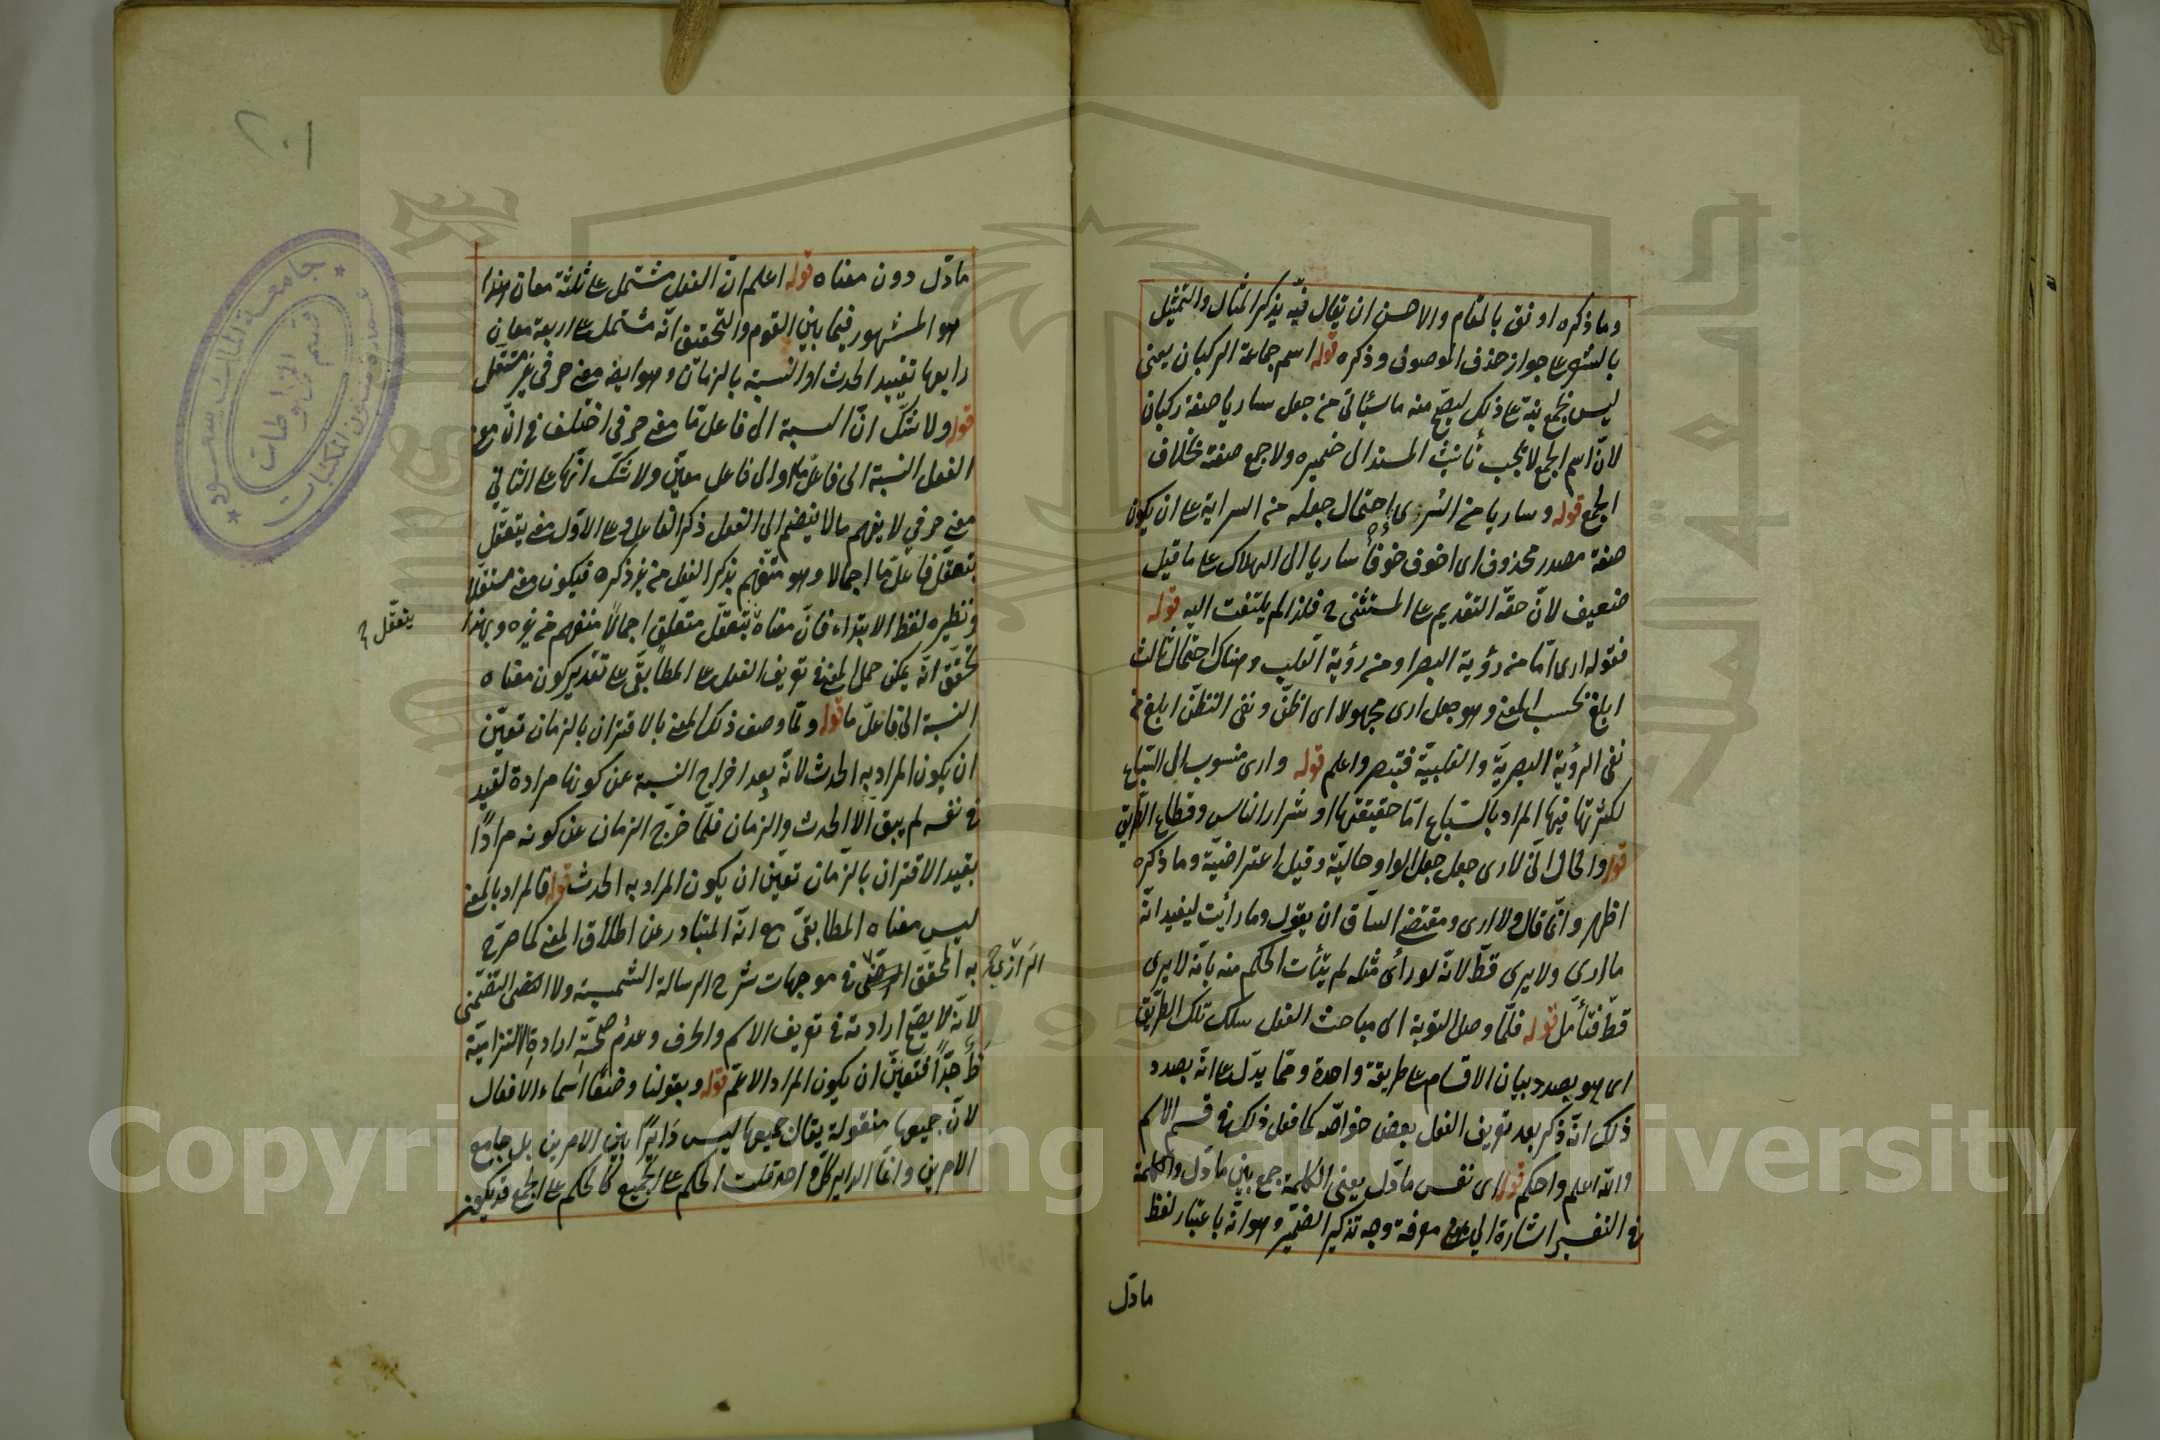 وما ذكره اوفق بالمقام والاحسن ان يقال فيه يذكر المثال والتمثيل
بالشهرة على جواز حذف الموصوف وذكره قوله اسم جماعة الركبان يعنى
ليس بجمع بنية على ذلك ليصح منه ما سيأتى من جعل ساريا صفة ركبان
لان اسم الجمع لا يجب تأنيث المسند الى ضميره ولا جمع صفته بخلاف
الجمع قوله وساريا من السرى احتمال جعله من السراية على ان يكون
صفة مصدر محذوف اى اخوف خوفا ساريا الى الهلاك على ما قيل
ضعيف لان حقه التقديم على المستثنى ح فلذا لم يلتفت اليه قوله
فقوله ارى اما من رؤية البصر او من رؤية القلب وهناك احتمال ثالث
ابلغ بحسب المعنى وهو جعل ارى مجهولا اى اظن ونفى التظنن ابلغ من
نفى الرؤية البصرية والقلبية فتبصر واعلم قوله وارى منسوب الى السباع
لكثرتها فيها المراد بالسباع اما حقيقتها او شرار الناس وقطاع الطريق
قوله والحال انى لا ارى جعل جعل الواو حالية وقيل اعتراضية وما ذكره
اظهر وانما قال ولا ارى ومقتضى السياق ان يقول وما رأيت ليفيد انه
ما ارى ولا يرى قط لانه لو رأى مثله لم يتأت الحكم منه بانه لا يرى
قط فتأمل قوله فلما وصل النوبة الى مباحث الفعل سلك تلك الطريق
اى هو بصدد بيان الاقسام على طريقة واحدة ومما يدل على انه بصدد
ذلك انه ذكر بعد تعريف الفعل بعض خواصه كما فعل ذلك فى قسم الاسم
والله اعلم واحكم قوله اى نفس ما دل يعنى الكلمة جمع بين ما دل والكلمة
فى التفسير اشارة الى معرفة وجه تذكير الضمير وهو انه باعتبار لفظ
ما دل
٢٠١
ما دل دون معناه قوله اعلم ان الفعل مشتمل على ثلثة معان هذا
هو المشهور فيما بين القوم والتحقيق انه مشتمل على اربعة معان
رابعها تقييد الحدث او النسبة بالزمان وهو ايضا معنى حرفى غير مستقل
قوله ولا شك ان النسبة الى فاعل ما معنى حرفى اختلف فى ان معنى
الفعل النسبة الى فاعل ما او الى فاعل معين ولا شك انها على الثانى
معنى حرفى لا يفهم ما لا ينضم الى الفعل ذكر الفاعل وعلى الاول معنى يتعقل
بتعقل فاعل ما اجمالا وهو متفهم بذكر الفعل من غير ذكره فيكون معنى مستقلا
ونظيره لفظ الابتداء فان معناه يتعقل متعلق اجمالا متفهم من غيره وبهذا
يتعقل ح
تحقق انه يمكن حمل المعنى فى تعريف الفعل على المطابقى على تقدير كون معناه
النسبة الى فاعل ما قوله ولما وصف ذلك المعنى بالاقتران بالزمان تعين
ان يكون المراد به الحدث لانه بعد اخراج النسبة عن كونها مرادة لقيد
فى نفسه لم يبق الا الحدث والزمان فلما خرج الزمان عن كونه مرادا
بقيد الاقتران بالزمان تعين ان يكون المراد به الحدث قوله فالمراد بالمعنى
ليس معناه المطابقى مع انه المتبادر عن اطلاق المعنى كما صرح
به المحقق فى موجهات شرح الرسالة الشمسية ولا التضمنى
الرازى ح
لانه لا يصح ارادته فى تعريف الاسم والحرف وعدم صحة ارادة الالتزامية
ظ جدا فتعين ان يكون المراد الاعم قوله وبقولنا وضعا اسماء الافعال
لان جميعها منقولة يقال جميعها ليس دايرا بين الامرين بل جامع
الامرين وانما الداير كل واحد قلت الحكم على الجميع كالحكم على الجمع قد يكون
جامعة الملك سعود
قسم المخطوطات
عمادة شئون المكتبات
Copyright © King Saud University
1957